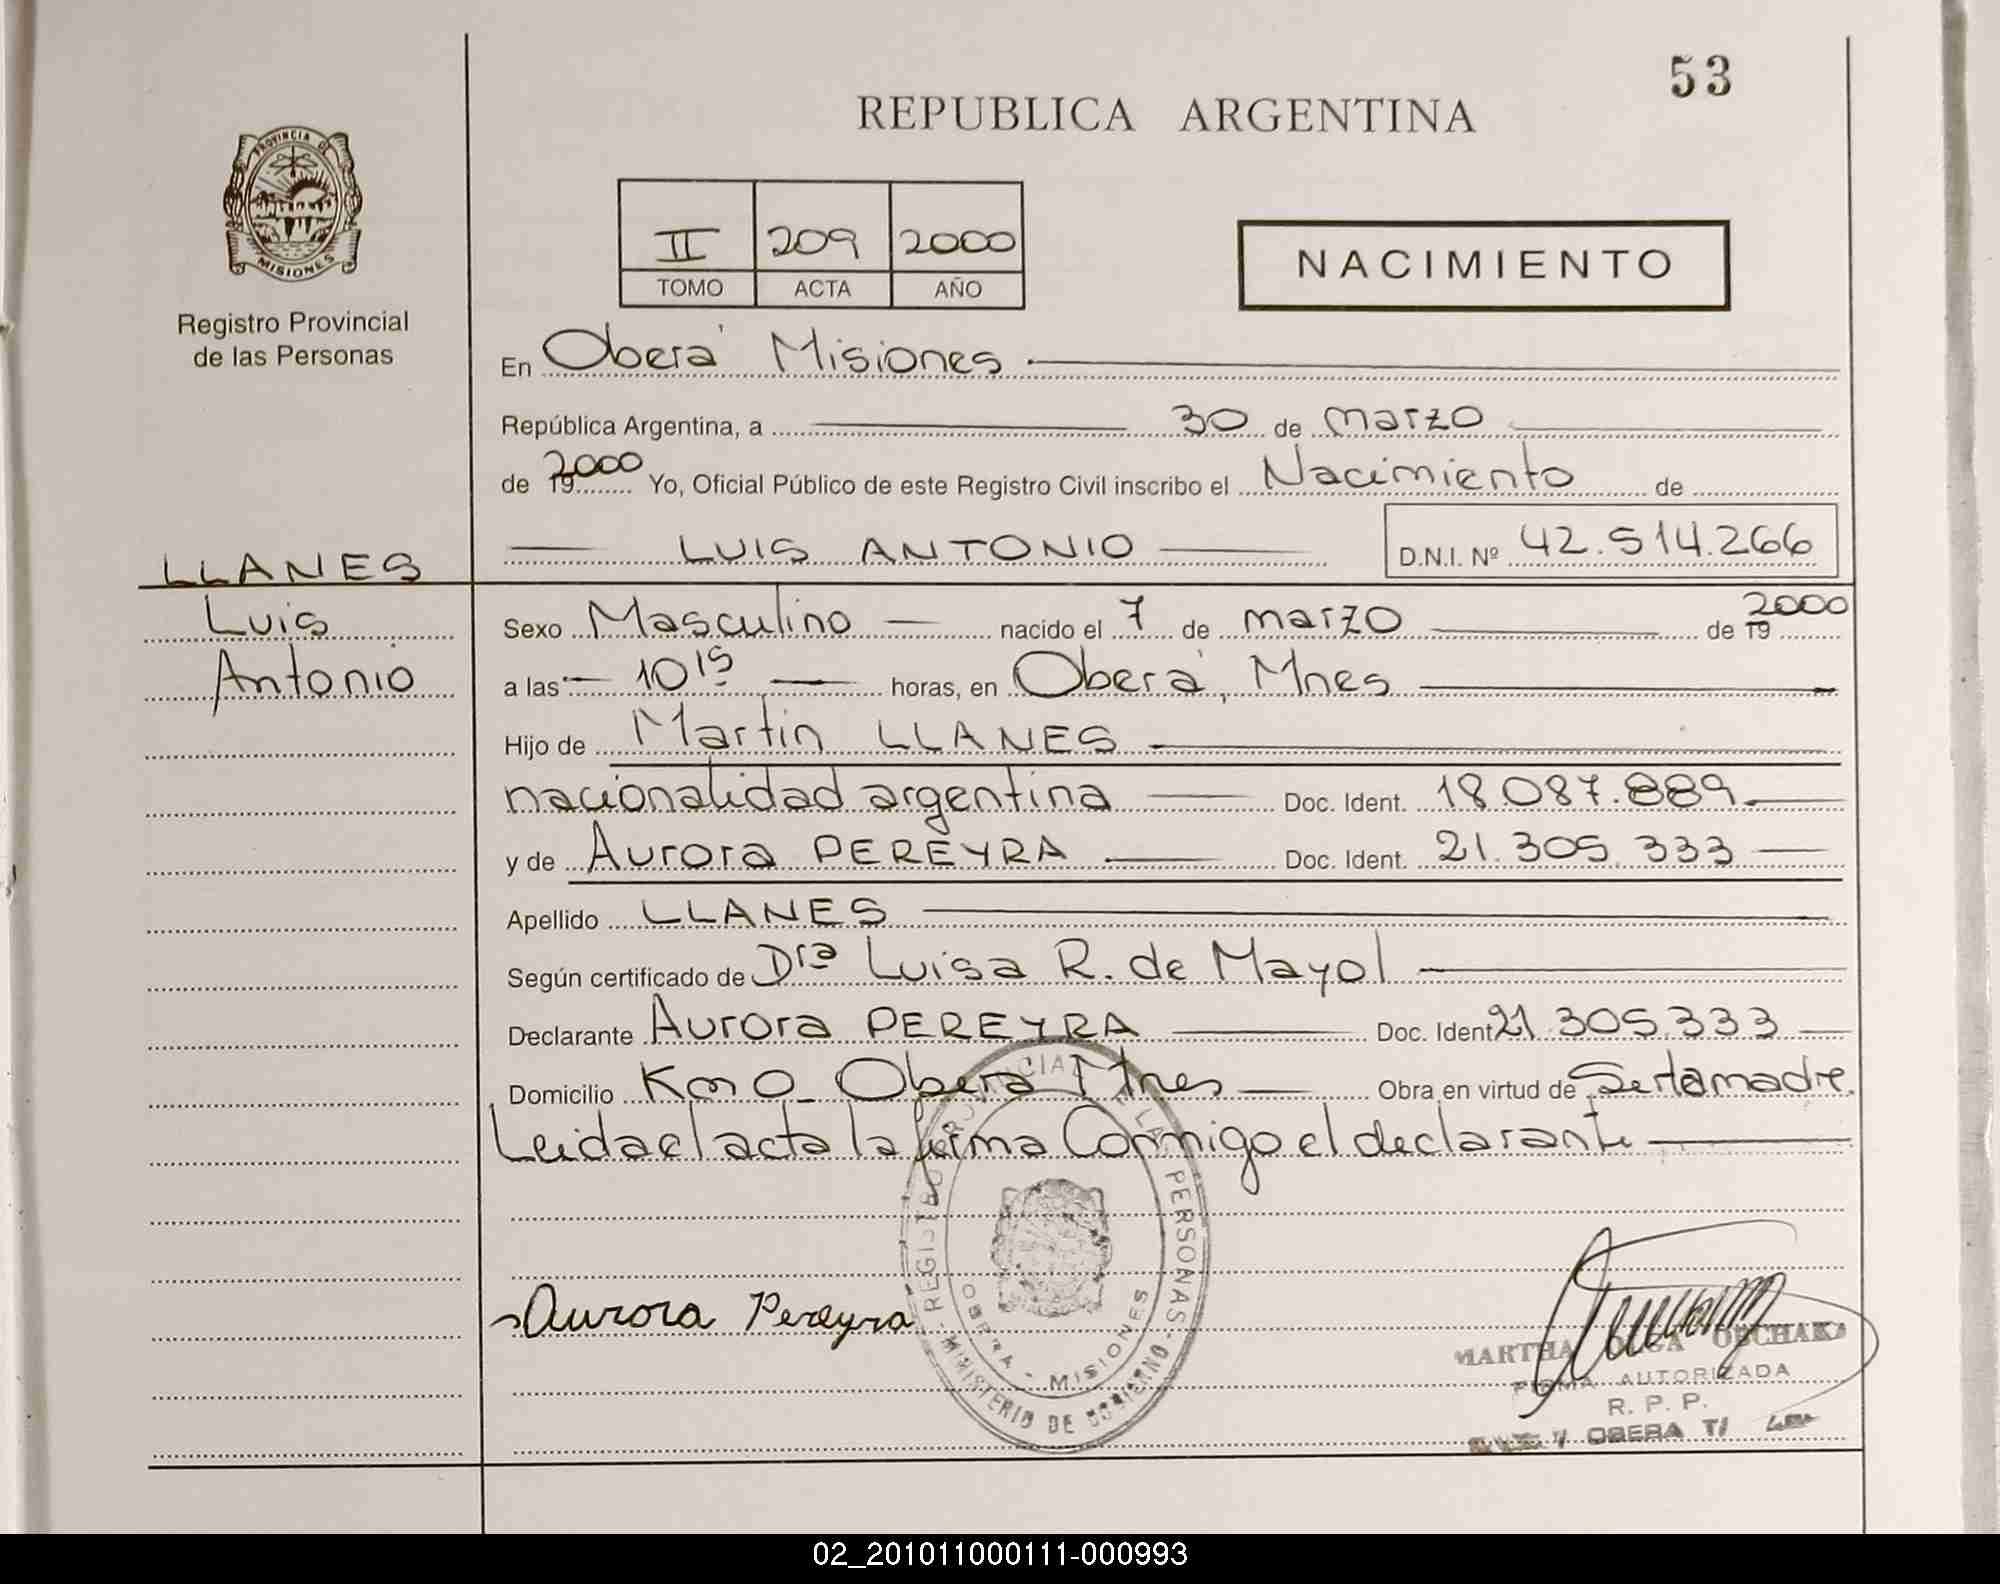 53
REPUBLICA ARGENTINA
PROVINCIA DE
MISIONES
Registro Provincial
de las Personas
II 209 2000
TOMO ACTA AÑO
NACIMIENTO
En Oberá Misiones
República Argentina, a 30 de marzo
de 19 2000 Yo, Oficial Público de este Registro Civil inscribo el Nacimiento de
LUIS ANTONIO D.N.I. Nº 42.514.266
LLANES
Luis
Antonio
Sexo Masculino nacido el 7 de marzo de 19 2000
a las 10 15 horas, en Oberá, Mnes
Hijo de Martin LLANES
nacionalidad argentina Doc. Ident. 18.087.889
y de Aurora PEREYRA Doc. Ident. 21.305.333
Apellido LLANES
Según certificado de Dra Luisa R. de Mayol
Declarante Aurora PEREYRA Doc. Ident 21.305.333
Domicilio Km 0 Oberá Mnes Obra en virtud de Ser la madre
Leida el acta la firma Conmigo el declarante
REGISTRO PROVINCIAL DE LAS PERSONAS
MINISTERIO DE GOBIERNO
OBERA - MISIONES
Aurora Pereyra
MARTHA OLGA
FIRMA AUTORIZADA
R. P. P.
OBERA
02_201011000111-000993